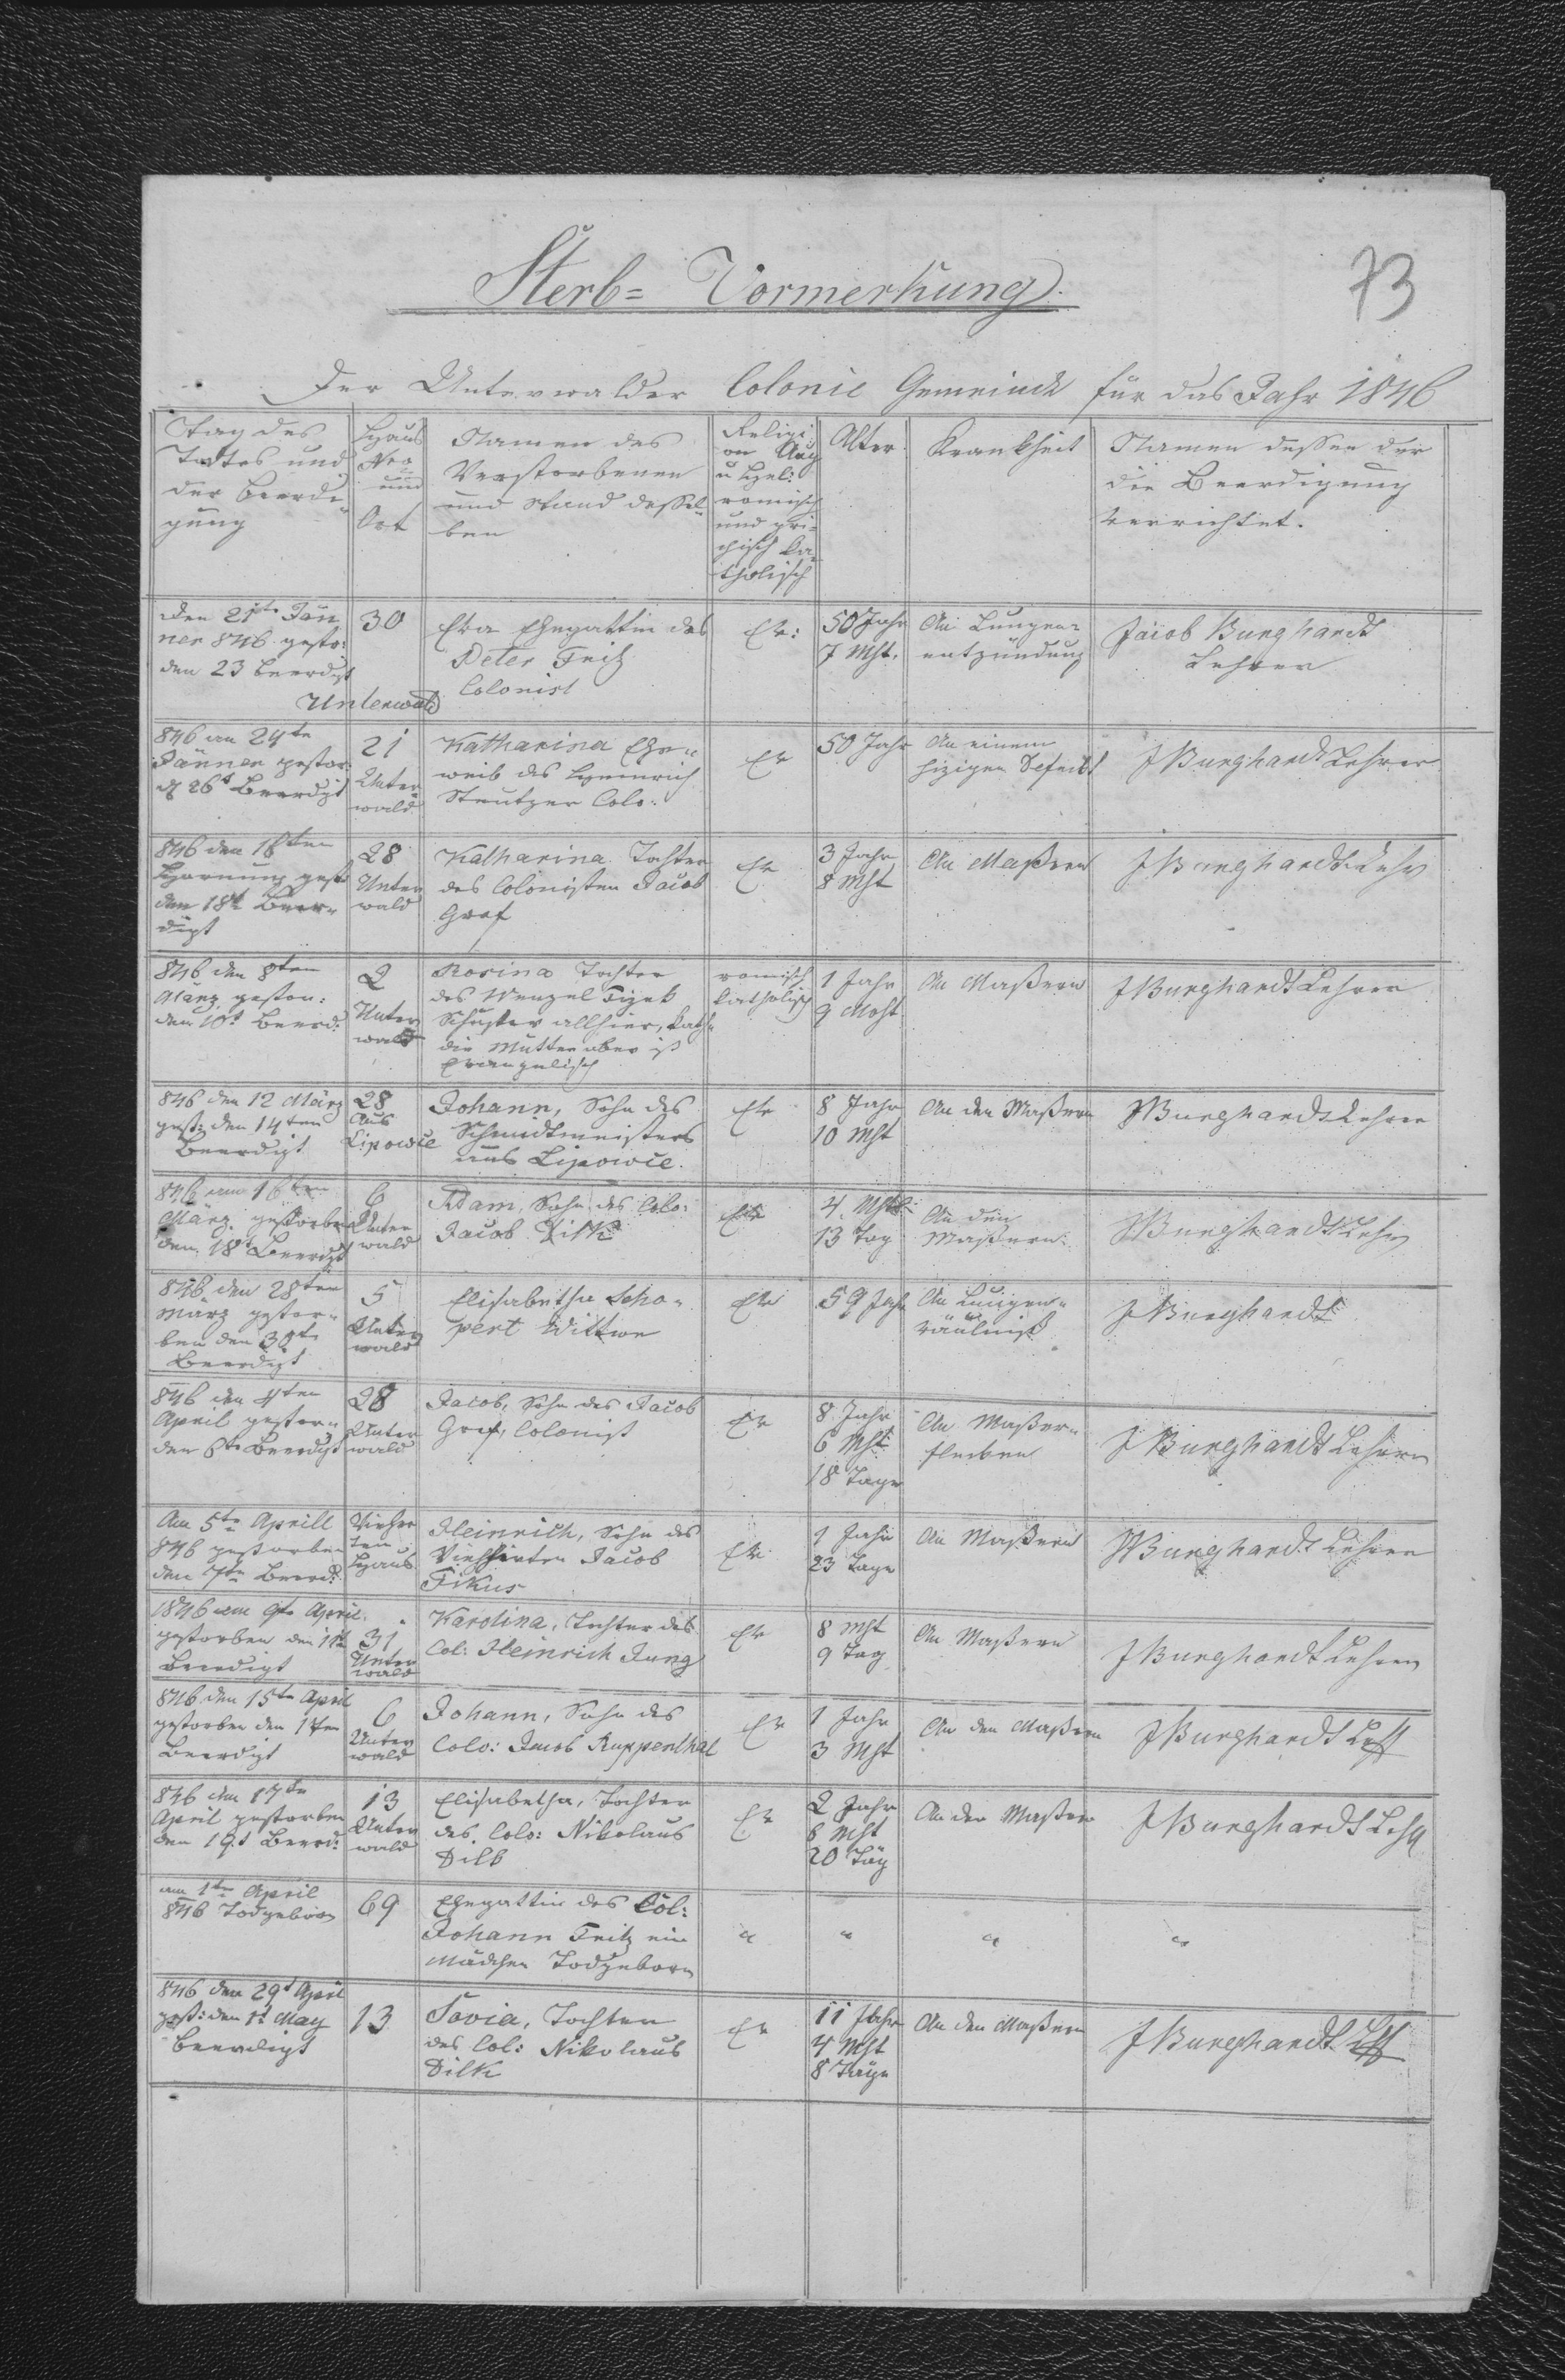 Sterb= Vormerkung.
73
Der Unterwalder Colonie Gemeinde für das Jahr 1846
Tag des
Todes und
der Beerdi-
gung
Haus
Nro
und
Ort
Namen des
Verstorbenen
und Stand dessel-
ben
Religi-
on Aug
u Hel:
römisch
und gri-
chisch Ka-
tholisch
Alter
Krankheit
Namen dessen der
die Beerdigung
verrichtet.
den 21te Jän
ner 846 gesto:
den 23 beerdigt
30
Unterwald
Eva Ehegattin des
Peter Fritz
Colonist
Ev:
50 Jahr
7 Mht.
An Lungen-
entzündung
Jacob Burghardt
Lehrer
846 am 24te
Jänner gestor:
d 26t Beerdigt
21
Unter
wald
Katharina Ehe-
weib des Heinrich
Stutzer Colo:
Ev
50 Jahr
An einem
hizigen
JBurghardt Lehrer
846 den 16ten
Hornung gest
den 18t Beer-
digt
28
Unter
wald
Katharina Tochter
des Colonisten Jacob
Graf
Ev
3 Jahr
8 Mht
An Maßern
JBurghardt Lehr
846 den 8ten
März gestor:
den 10t Beerd:
2
Unter
wald
Rosina Tochter
des Wenzel
Schuster allhier, Kath
die Mutter aber ist
Evangelisch
römisch
katholisch
1 Jahr
9 Moht
An Maßern
JBurghardt Lehrer
846 den 12 März
gest: den 14ten
Beerdigt
28
Aus
Lipowie
Johann, Sohn des
Schmidtmeisters
aus Lipowie.
Ev
8 Jahr
10 Mht
An den Maßern
JBurghardt Lehrer
846 am 16ten
März gestorben
den 18t Beerdigt
6
Unter
wald
Adam, Sohn des Colo:
Jacob Dilk
Ev
4. Mht
13 Tag
An den
Maßern
JBurghardt Lehr
846 den 28ten
März gestor-
ben den 30te
Beerdigt
5
Unter
wald
Elisabetha Scho-
pert Wittwe
Ev
59 Jahr
An Lungen-
fäulniß
JBurghardt
846 den 4ten
April gestor-
den 6te Beerdigt
28
Unter
wald
Jacob, Sohn des Jacob
Graf, Colonist
Ev
8 Jahr
6 Mht
18 Tage
An Maßer-
flecken
JBurghardt Lehrer
Am 5te Aprill
846 gestorben
den 7te Beerd:
Viehhir
ten
Haus
Heinrich, Sohn des
Viehhirten Jacob
Fikus
Ev
1 Jahr
23 Tage
An Maßern
JBurghardt Lehrer
1846 am 9te April.
gestorben den 11te
Beerdigt
31
Unter
wald
Karolina, Tochter des
Col: Heinrich Jung
Ev
8 Mht
9 Tag
An Maßern
JBurghardt Lehrer
846 den 15te April
gestorben den 17en
Beerdigt
6
Unter
wald
Johann, Sohn des
Colo: Jacob Ruppenthal
Ev
1 Jahr
3 Mht
An den Maßern
JBurghardt Leh
846 den 17te
April gestorben
den 19t Beerd:
13
Unter
wald
Elisabetha, Tochter
des. Colo: Nikolaus
Dilk
Ev
2 Jahr
6 Mht
20 Täg
An den Maßern
JBurghardt Leh
am 1te April
846 Todgeborn
69
Ehegattin des Col:
Johann Fritz ein
Mädchen Todgeborn
"
"
"
"
846 den 29t April
gest: den 1t May
Beerdigt
13
Sovia, Tochter
des Col: Nikolaus
Dilk
Ev
11 Jahr
4 Mht
8 Tage
An den Maßern
JBurghardt